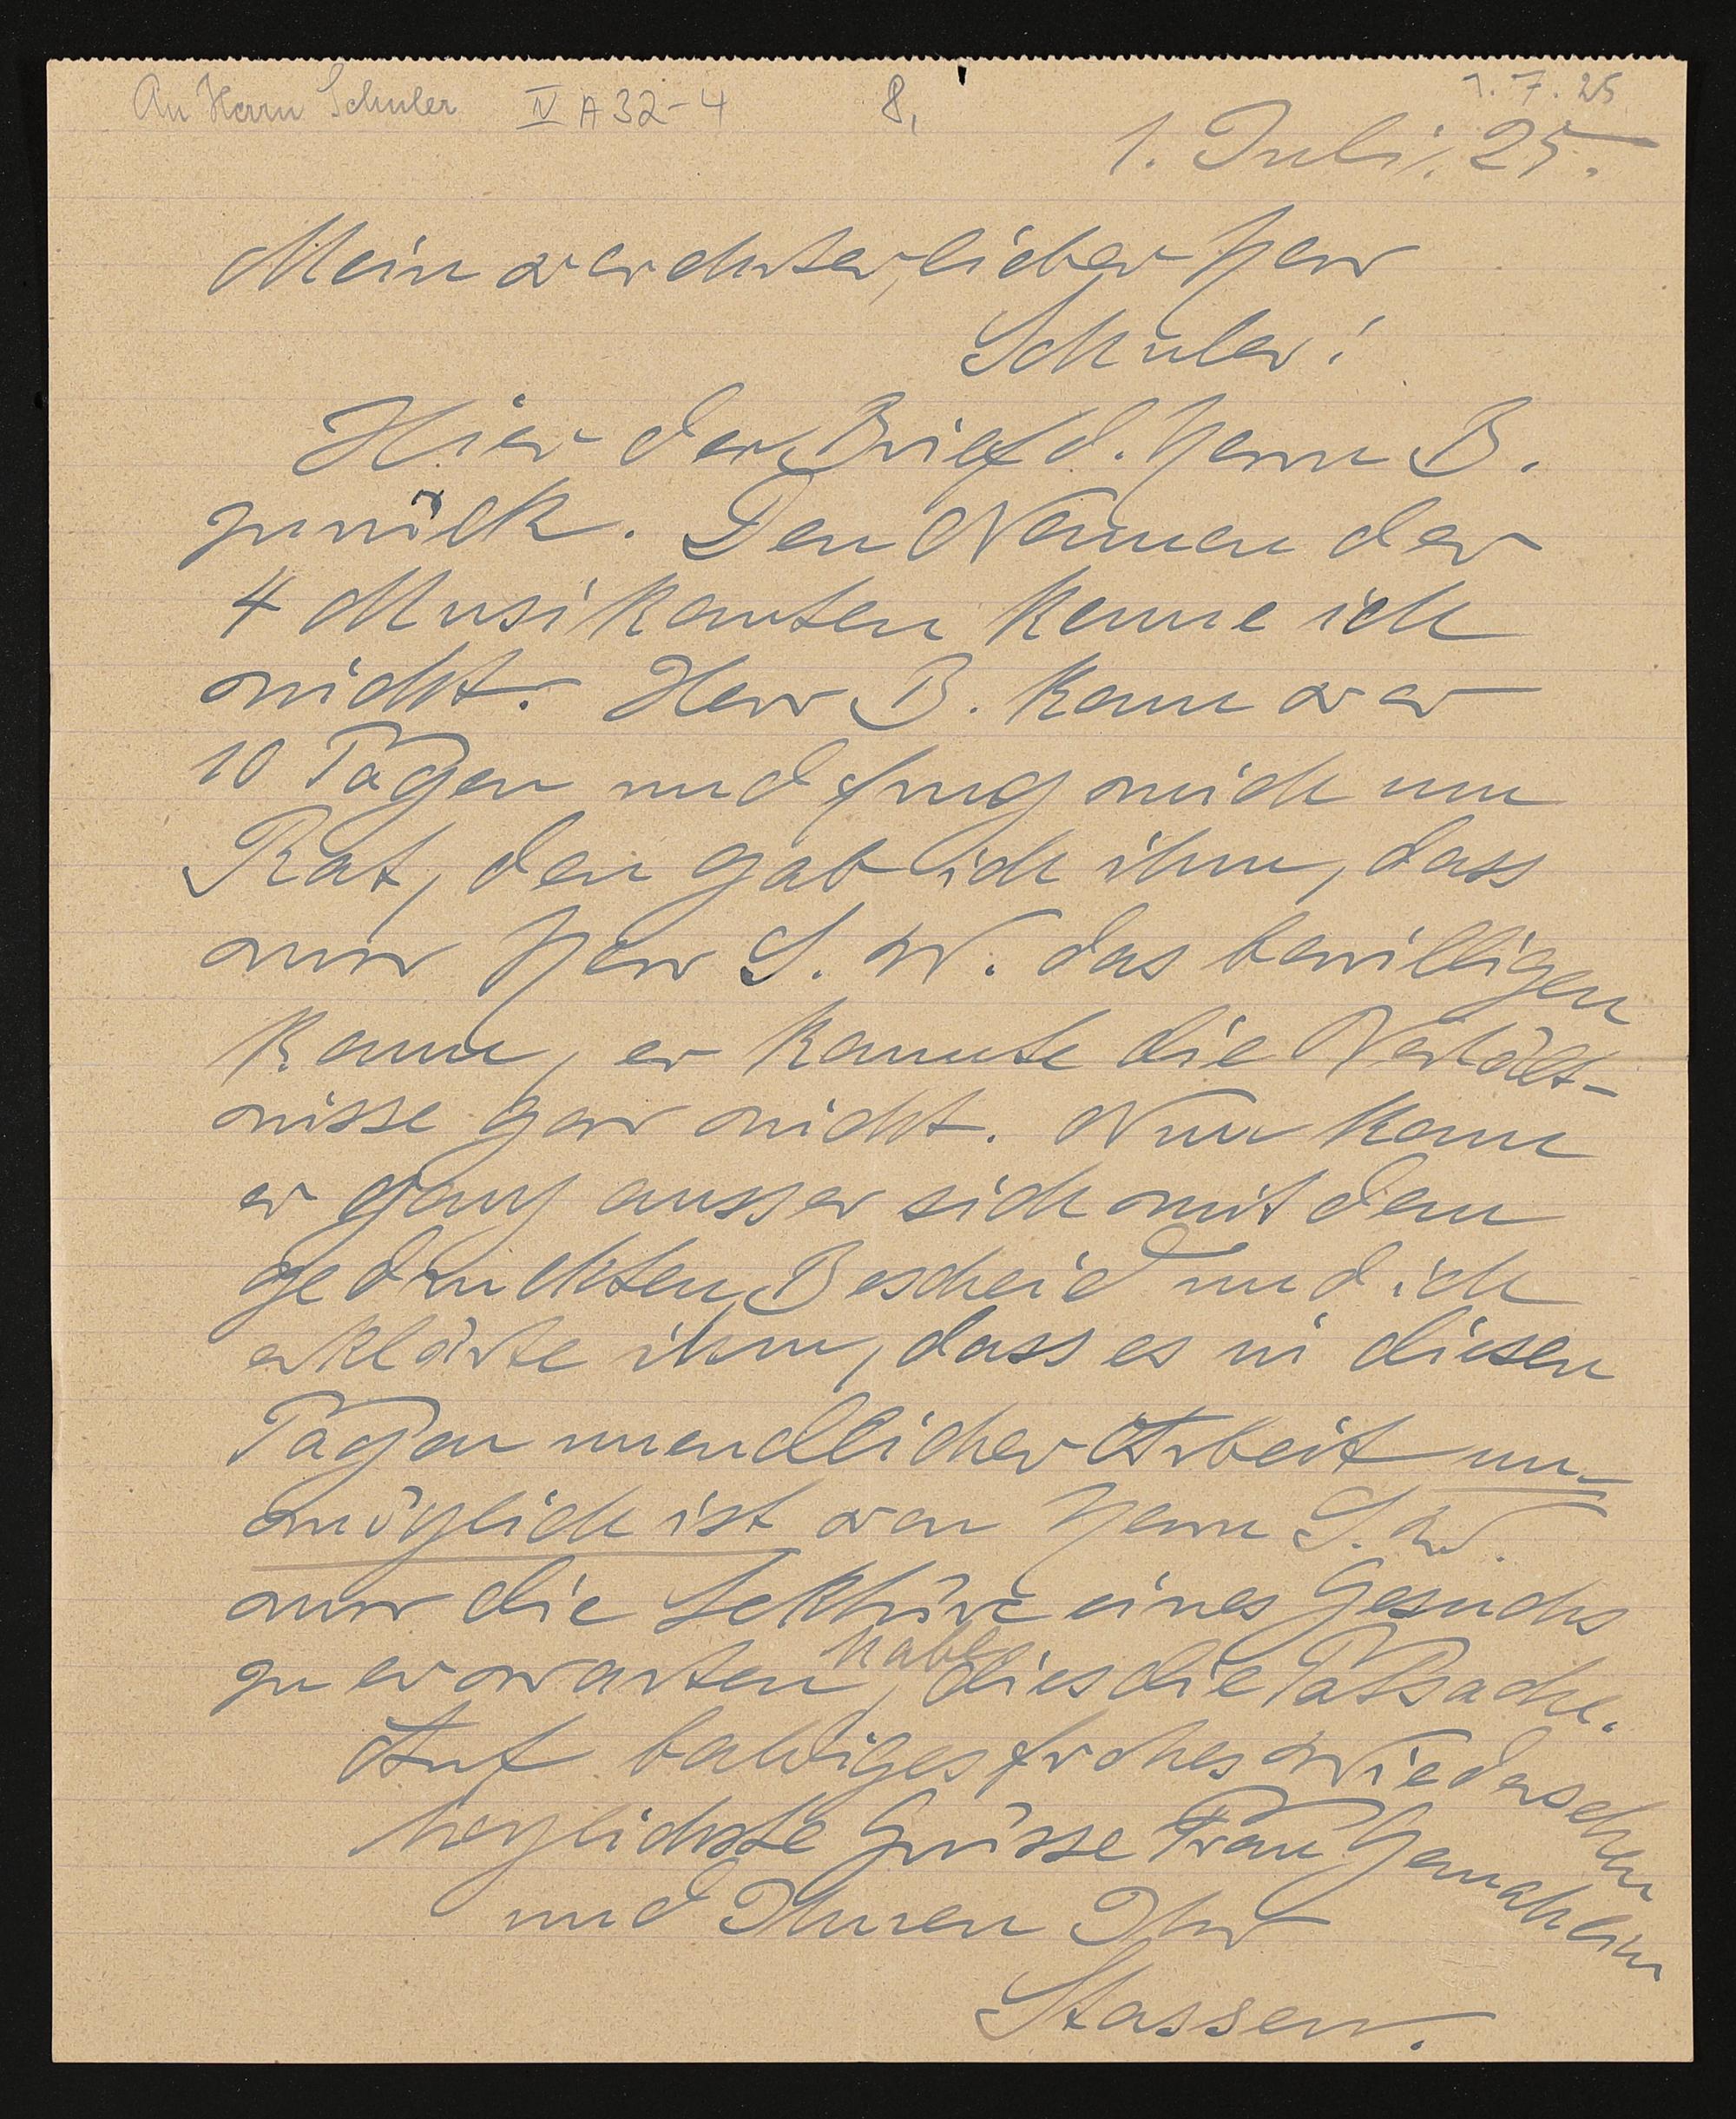 An Herrn Schuler IV A 32-4 8, 1.7.25
1. Juli, 25.
Mein verehrter, lieber Herr
Schuler!
Hier der Brief d. Herrn B.
zurück. Den Namen der
4 Musikanten kenne ich
nicht. Herr B. kam vor
10 Tagen und frug mich um
Rat, den gab ich ihm, dass
nur Herr S. W. das bewilligen
kann, er kannte die Verhält-
nisse gar nicht. Nun kam
er ganz ausser sich mit dem
gedruckten Bescheid und ich
erklärte ihm, dass es in diesen
Tagen unendlicher Arbeit un-
möglich ist von Herrn S. W.
nur die Lektüre eines Gesuchs
zu erwarten, habe dies die Tatsache.
Auf baldiges frohes Wiedersehen
herzlichste Grüsse Frau Gemahlin
und Ihnen Ihr
Stassen.